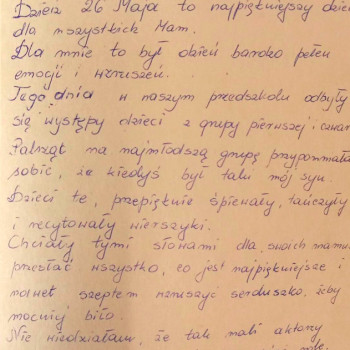 Dzień 26 Maja to najpiękniejszy dzień
dla wszystkich Mam.
Dla mnie to był dzień bardzo pełen
emocji i wzruszeń.
Tego dnia w naszym przedszkolu odbyły
się występy dzieci z grupy pierwszej i czwar
Patrząc na najmłodszą grupę przypomniała
sobie, że kiedyś był taki mój syn.
Dzieci te, przepięknie śpiewały, tańczyły
i recytowały wierszyki.
Chciały tymi słowami dla swoich mamu
przesłać wszystko, co jest najpiękniejsze i
nawet szeptem wzruszyć serduszko, żeby
mocniej biło.
Nie wiedziałam, że tak mali aktorzy